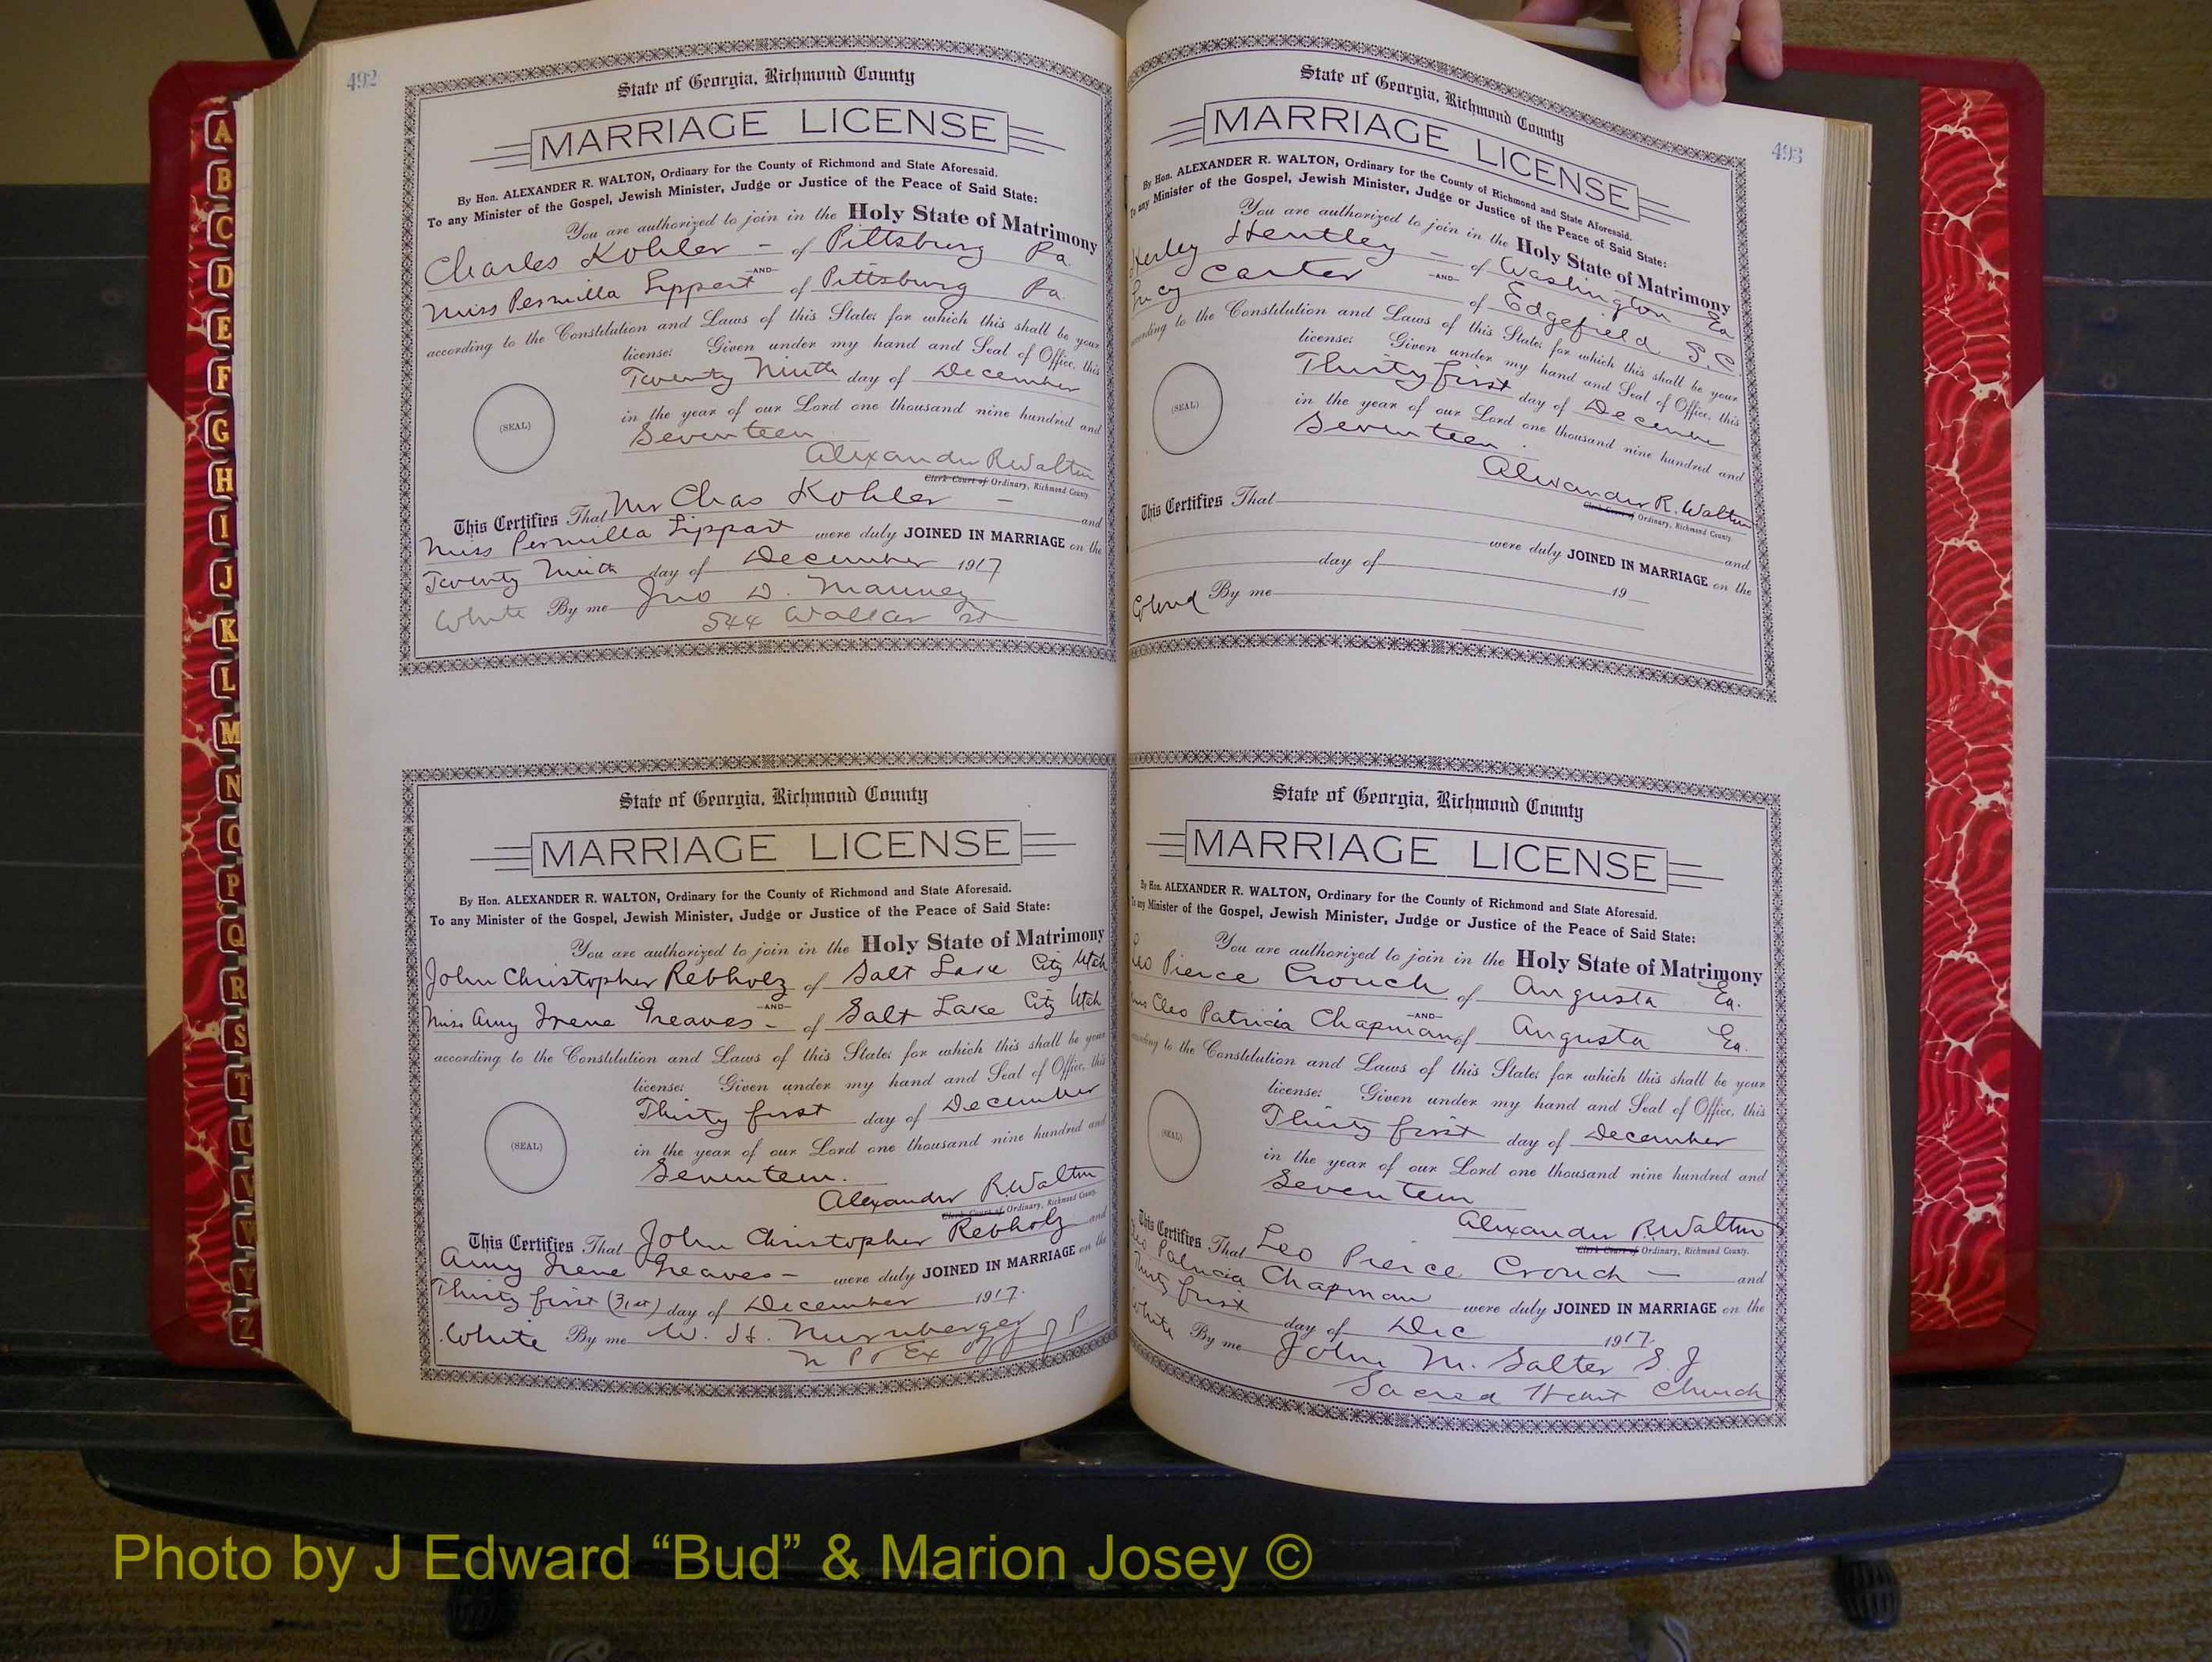 492
State of Georgia, Richmond County
MARRIAGE LICENSE
By Hon. ALEXANDER R. WALTON, Ordinary for the County of Richmond and State Aforesaid.
To any Minister of the Gospel, Jewish Minister, Judge or Justice of the Peace of Said State:
You are authorized to join in the Holy State of Matrimony
Charles Kohler - of Pittsburg Pa.
-AND-
Miss Permilla Lippart of Pittsburg Pa.
according to the Constitution and Laws of this State; for which this shall be your
license: Given under my hand and Seal of Office, this
Twenty Ninth day of December
in the year of our Lord one thousand nine hundred and
Seventeen
(SEAL)
Alexander R Walton
Clerk Court of Ordinary, Richmond County
This Certifies That Mr Chas Kohler - and
Miss Permilla Lippart were duly JOINED IN MARRIAGE on the
Twenty Ninth day of December 1917
White By me Jno D. Mauney
544 Walker St
State of Georgia, Richmond County
MARRIAGE LICENSE
By Hon. ALEXANDER R. WALTON, Ordinary for the County of Richmond and State Aforesaid.
To any Minister of the Gospel, Jewish Minister, Judge or Justice of the Peace of Said State:
You are authorized to join in the Holy State of Matrimony
John Christopher Rebholz of Salt Lake City Utah
-AND-
Miss Amy Irene Greaves - of Salt Lake City Utah
according to the Constitution and Laws of this State; for which this shall be your
license: Given under my hand and Seal of Office, this
Thirty first day of December
in the year of our Lord one thousand nine hundred and
Seventeen.
(SEAL)
Alexander R. Walton
Clerk Court of Ordinary, Richmond County.
This Certifies That John Christopher Rebholz and
Amy Irene Greaves - were duly JOINED IN MARRIAGE on the
Thirty first (31st) day of December 1917.
White By me W. H. Nurnberger
N P & Ex Off J P
493
State of Georgia, Richmond County
MARRIAGE LICENSE
By Hon. ALEXANDER R. WALTON, Ordinary for the County of Richmond and State Aforesaid.
To any Minister of the Gospel, Jewish Minister, Judge or Justice of the Peace of Said State:
You are authorized to join in the Holy State of Matrimony
Hentley - of Washington Ga
-AND-
Lucy Carter of Edgefield S.C.
according to the Constitution and Laws of this State; for which this shall be your
license: Given under my hand and Seal of Office, this
Thirty first day of December
in the year of our Lord one thousand nine hundred and
Seventeen.
(SEAL)
Alexander R. Walton
Clerk Court of Ordinary, Richmond County
This Certifies That and
were duly JOINED IN MARRIAGE on the
day of 19
Colored By me
State of Georgia, Richmond County
MARRIAGE LICENSE
By Hon. ALEXANDER R. WALTON, Ordinary for the County of Richmond and State Aforesaid.
To any Minister of the Gospel, Jewish Minister, Judge or Justice of the Peace of Said State:
You are authorized to join in the Holy State of Matrimony
Leo Pierce Crouch of Augusta Ga.
-AND-
Miss Cleo Patricia Chapman of Augusta Ga.
according to the Constitution and Laws of this State; for which this shall be your
license: Given under my hand and Seal of Office, this
Thirty first day of December
in the year of our Lord one thousand nine hundred and
Seventeen
(SEAL)
Alexander R. Walton
Clerk Court of Ordinary, Richmond County.
This Certifies That Leo Pierce Crouch - and
Cleo Patricia Chapman were duly JOINED IN MARRIAGE on the
Thirty first day of Dec 1917.
White By me John M. Salter S. J
Sacred Heart Church
A
B
C
D
E
F
G
H
I
J
K
L
M
N
O
P
Q
R
S
T
U
V
W
Y
Z
Photo by J Edward “Bud” & Marion Josey ©